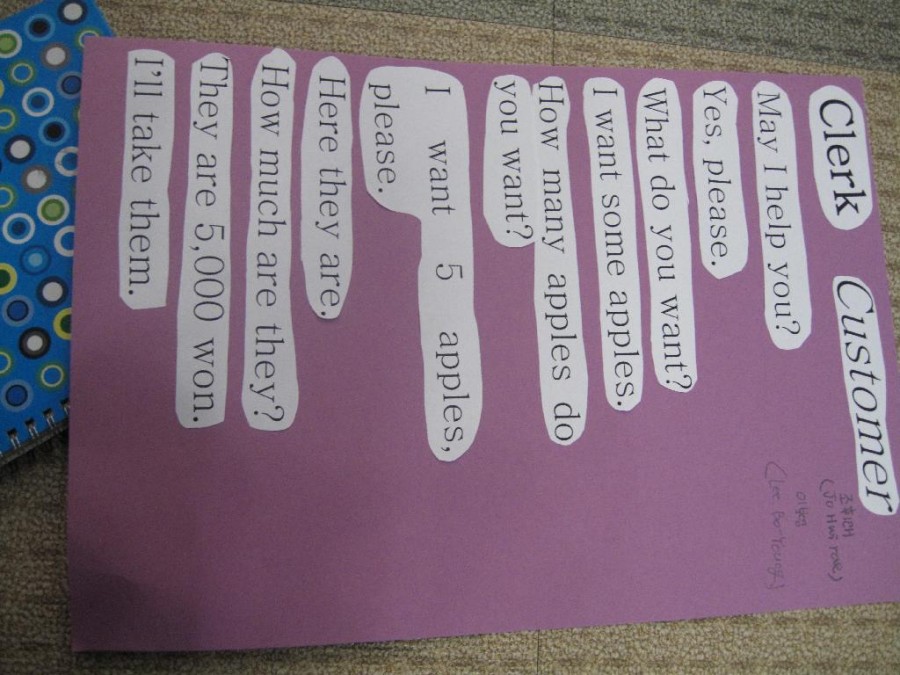 Clerk Customer
May I help you?
Yes, please.
What do you want?
I want some apples.
How many apples do
you want?
I want 5 apples,
please.
Here they are.
How much are they?
They are 5,000 won.
I'll take them.
(Jo Hwi rae)
(Lee Bo-Young)